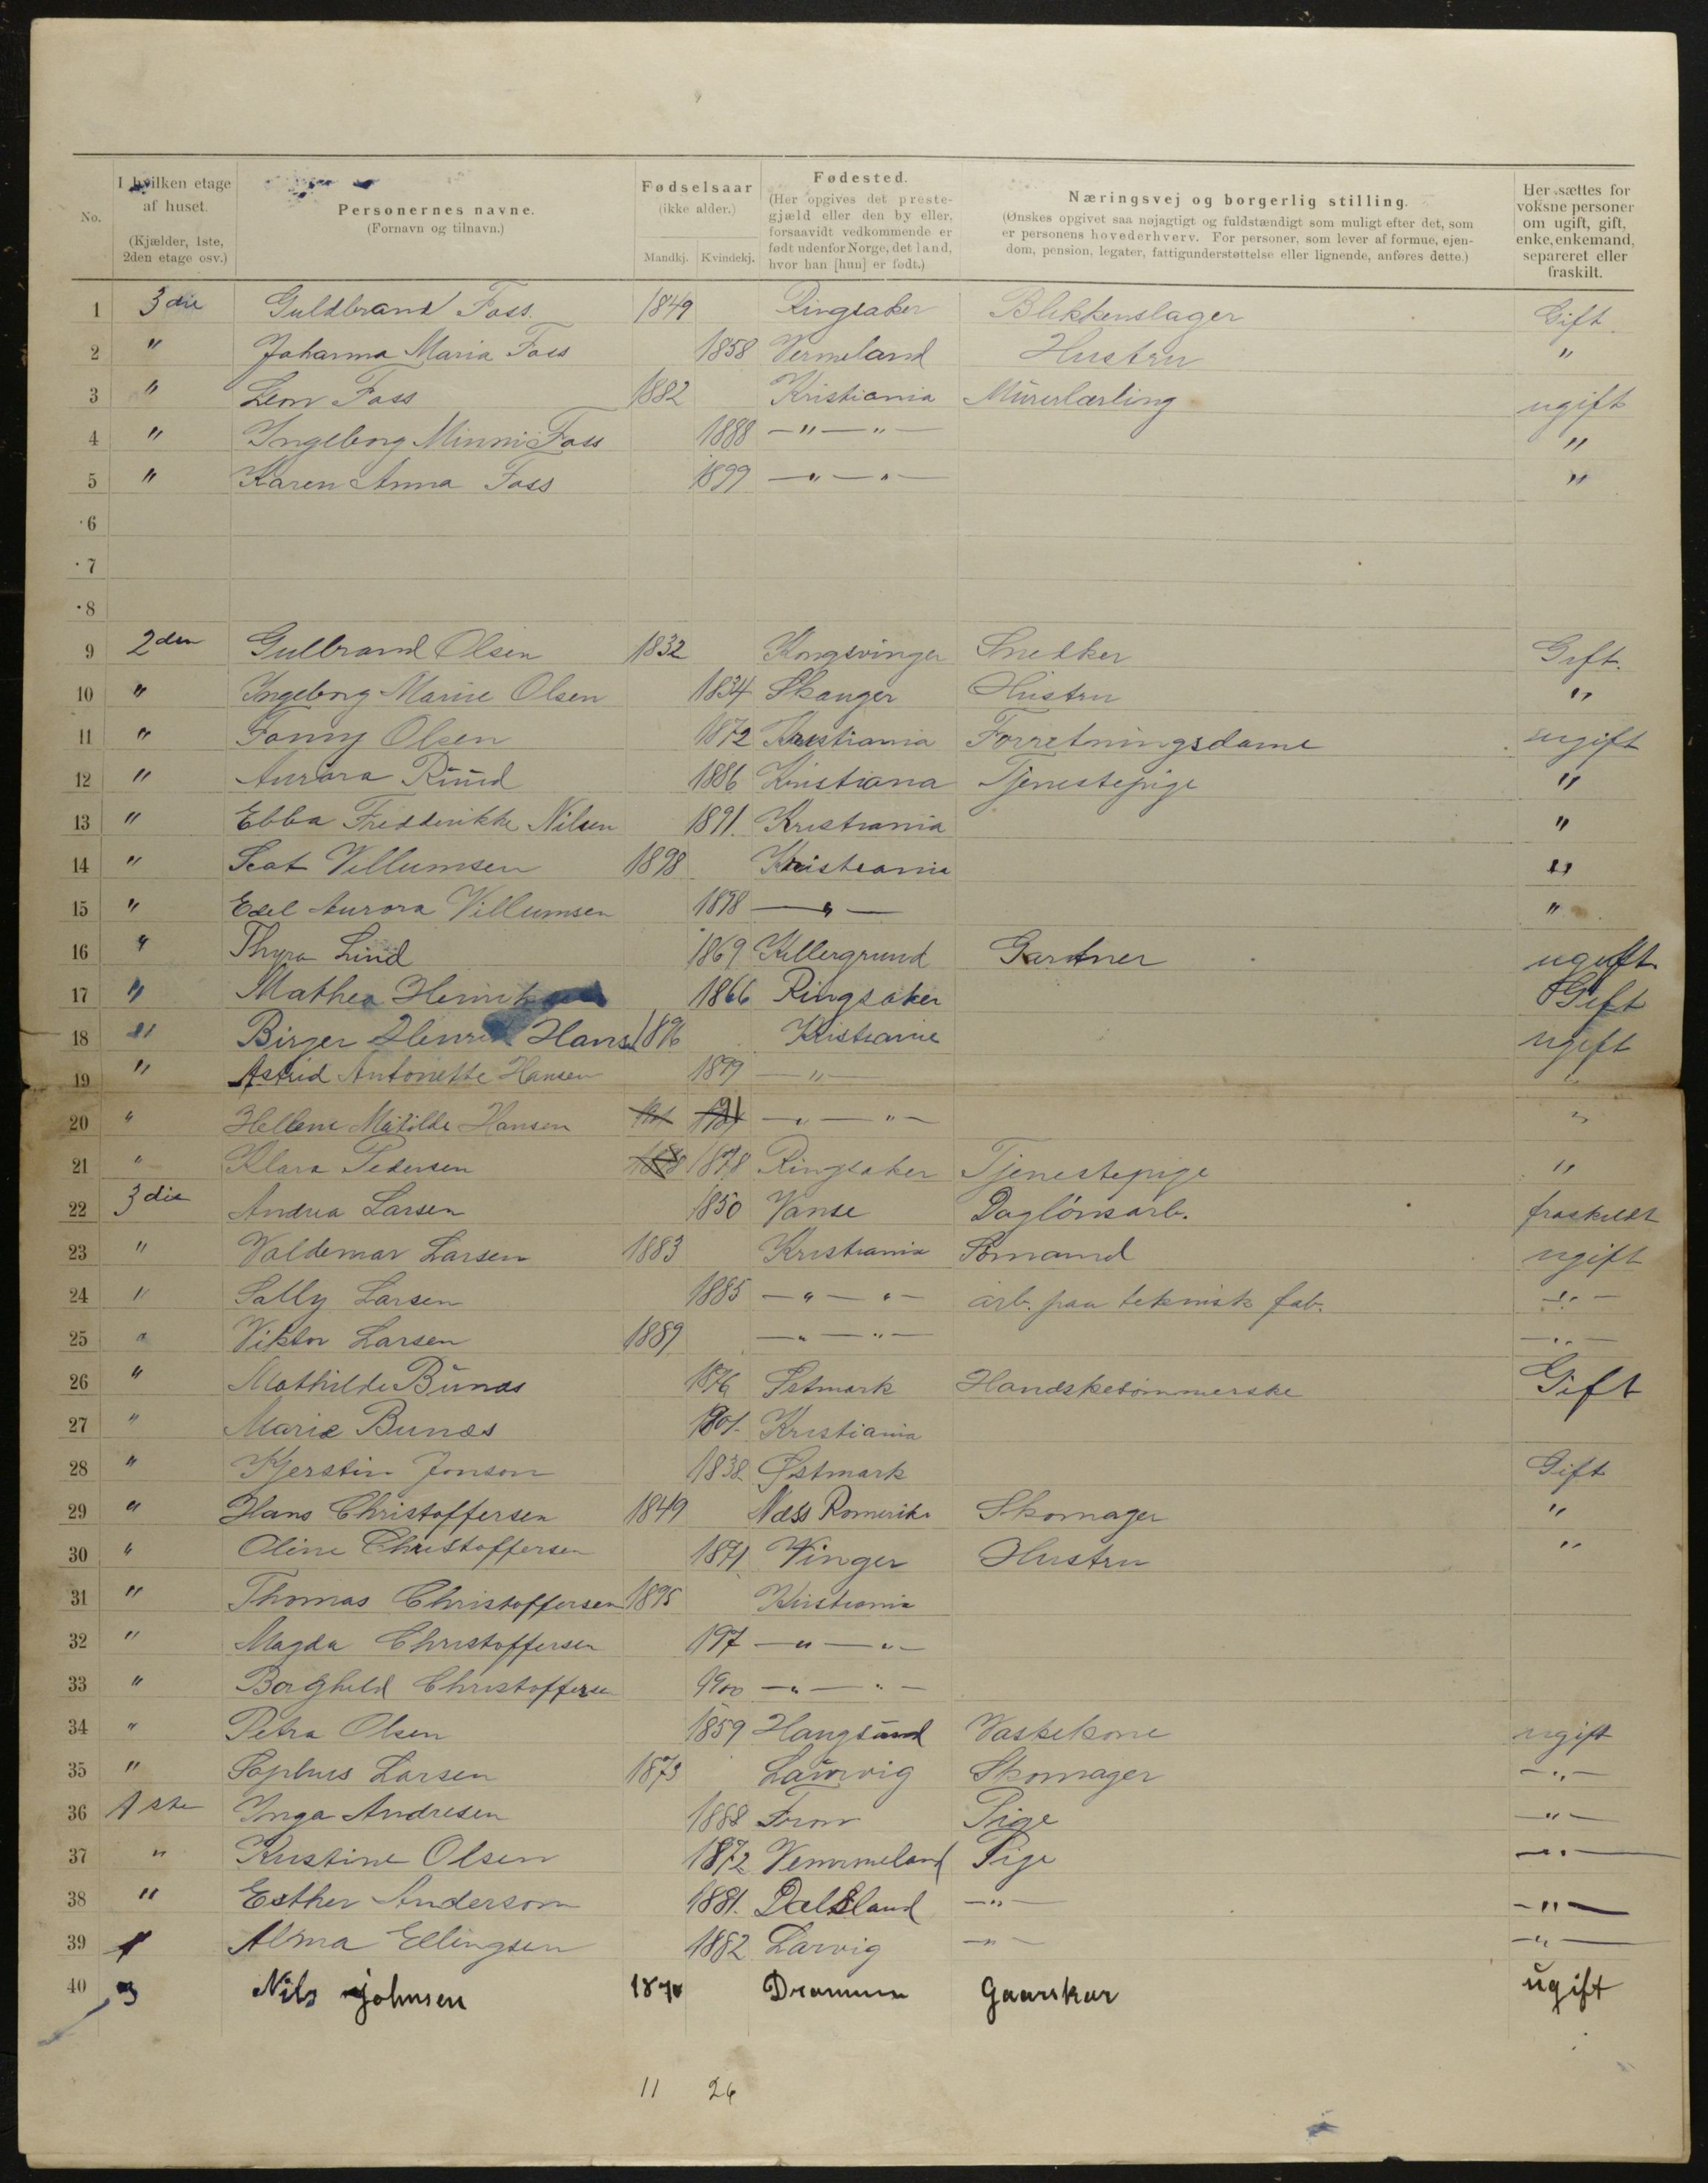 No. I hvilken etage af huset. (Kjælder, 1ste, 2den etage osv.) Personernes navne. (Fornavn og tilnavn.) Fødselsaar (ikke alder.) Mandkj. Kvindekj. Fødested. (Her opgives det prestegjæld eller den by eller, forsaavidt vedkommende er født udenfor Norge, det land, hvor han [hun] er født.) Næringsvej og borgerlig stilling. (Ønskes opgivet saa nøjagtigt og fuldstændigt som muligt efter det, som er personens hovederhverv. For personer, som lever af formue, ejendom, pension, legater, fattigunderstøttelse eller lignende, anføres dette.) Her sættes for voksne personer om ugift, gift, enke, enkemand, separeret eller fraskilt.
1 3die Guldbrand Foss 1849 Ringsaker Blikkenslager Gift
2 " Johanna Maria Foss 1858 Vermeland Hustru "
3 " Leon Foss 1882 Kristiania Murerlærling ugift
4 " Ingeborg Minni Foss 1888 — " — " — "
5 " Karen Anna Foss 1899 — " — " — "
6
7
8
9 2den Gulbrand Olsen 1832 Kongsvinger Snedker Gift.
10 " Ingeborg Marie Olsen 1834 Skauger Hustru "
11 " Fanny Olsen 1872 Kristiania Forretningsdame ugift
12 " Aurora Ruud 1886 Kristiana Tjenestepige "
13 " Ebba Fredderikke Nilsen 1891. Kristiania "
14 " Scot Villumsen 1898 Kristiania "
15 " Edel Aurora Villumsen 1898 — " — "
16 " Thyra Lind 1869 Killergrund Gartner ugift
17 " Mathea 1866 Ringsaker Gift
18 " Birger Henrik Hans 1896 Kristiania ugift
19 " Astrid Antonette Hansen 1899 — " — "
20 " Hellene Matilde Hansen — " — " — "
21 " Klara Pedersen 1878 Ringsaker Tjenestepige "
22 3die Andrea Larsen 1850 Vanse Daglönsarb. fraskildt
23 " Valdemar Larsen 1883 Kristiania Sömand ugift
24 " Sally Larsen 1885 — " — " — arb. paa teknisk fab. — " —
25 " Viktor Larsen 1889 — " — " — — " —
26 " Mathilde Bunæs 1876 Østmark Handskesömmerske Gift
27 " Marie Bunæs 1901. Kristiania
28 " Kjerstin Jonson 1838 Østmark Gift
29 " Hans Christoffersen 1849 Næss Romerike Skomager "
30 " Oline Christoffersen 1871 Vinger Hustru "
31 " Thomas Christoffersen 1895 Kristiania
32 " Magda Christoffersen 197 — " — " —
33 " Borghild Christoffersen 1900 — " — " —
34 " Petra Olsen 1859 Haugsund Vaskekone ugift
35 " Sophus Larsen 1873 Laurvig Skomager — " —
36 1ste Inga Andresen 1888 Pige — " —
37 " Kristine Olsen 1872 Vermmeland Pige — " —
38 " Esther Anderson 1881. Dalsland — " — — " —
39 " Alma Ellingsen 1882 Larvig — " — — " —
40 3 Nils Johnsen 1870 Drammen Gaarskar ugift
11 26